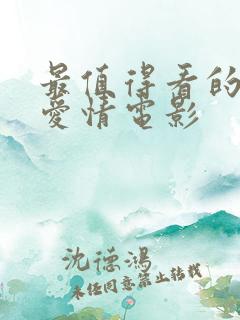 最值得看的
愛情电影
沈德鴻
未经同意禁止转载